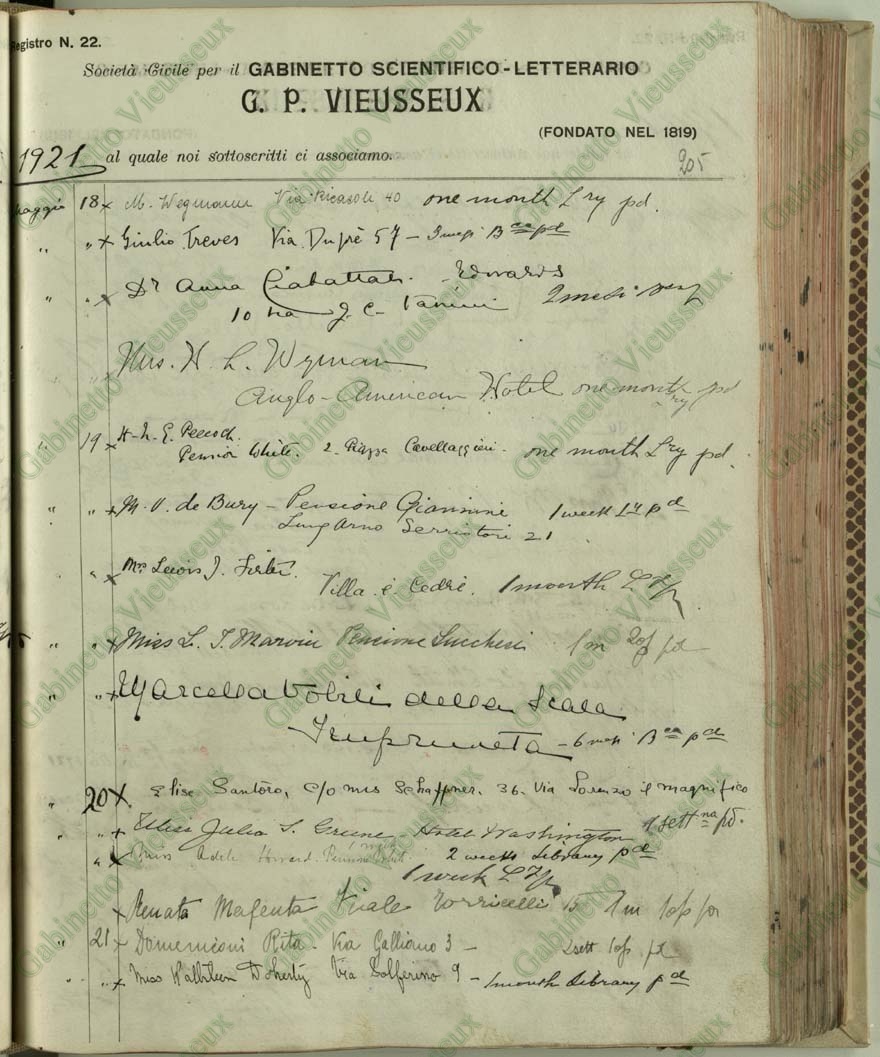 Registro N. 22.
Società Civile per il GABINETTO SCIENTIFICO-LETTERARIO
G. P. VIEUSSEUX
(FONDATO NEL 1819)
1921 al quale noi sottoscritti ci associamo. 205
Maggio 18 x M. Wegmann Via Ricasoli 40 one month Lry pd.
" " x Giulio Treves Via Dupré 57 - 3 mesi Bca pd
" " x Dr Anna Edwards
10 Via G. C. Vanini 2 mesi
Mrs. H. L. Wyman
Anglo-American Hotel one month Lry pd
" 19 x
Pension White. 2. Piazza Cavalleggieri - one month Lry pd.
" " x M. V. de Bury - Pensione Giannini 1 week Lry pd
Lung Arno Serristori 21
" x Mrs Lewis J.
Villa i Cedri. 1 month
" x Miss L. T. Marvin Pensione Lucchesi 1 m pd
" " x Marcella Nobili della Scala
Impruneta - 6 mesi Bca pd
" 20 x Elise Santoro, c/o Mrs Schaffner. 36. Via Lorenzo il Magnifico
" " x Miss Julia S. Greene - Hotel Washington 1 settna pd.
" x Adele Howard. 2 weeks Library pd
1 week
x Renata Magenta Viale Torricelli 15 1 m
" 21 x Domenisoni Rita - Via Galliano 3 - 2 sett pd
" x Miss Kathleen Doherty Via Solferino 9 - 1 month Library pd
Gabinetto Vieusseux